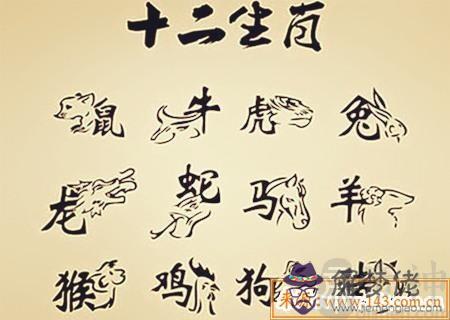 十二生肖
鼠 牛 虎 兔
龙 蛇 马 羊
猴 鸡 狗
www.v-143.com.cn